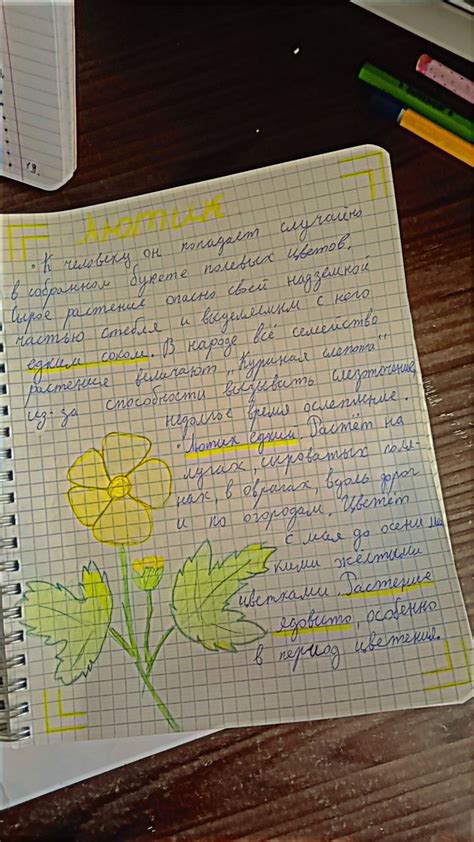 19.
лютик
• К человеку он попадает случайно
в собранном букете полевых цветов.
Сырое растение опасно своей надземной
частью стебля и выделяемым с него
едким соком. В народе всё семейство
растение величают „Куриная слепота"
из-за способности вызывать слезоточение,
недолгое время ослепление.
• Лютик едкий. Растёт на
лугах, сыроватых поля-
нах, в оврагах, вдоль дорог
и по огородам. Цветёт
с мая до осени
кими жёлтыми
цветками. Растение
ядовито, особенно
в период цветения.